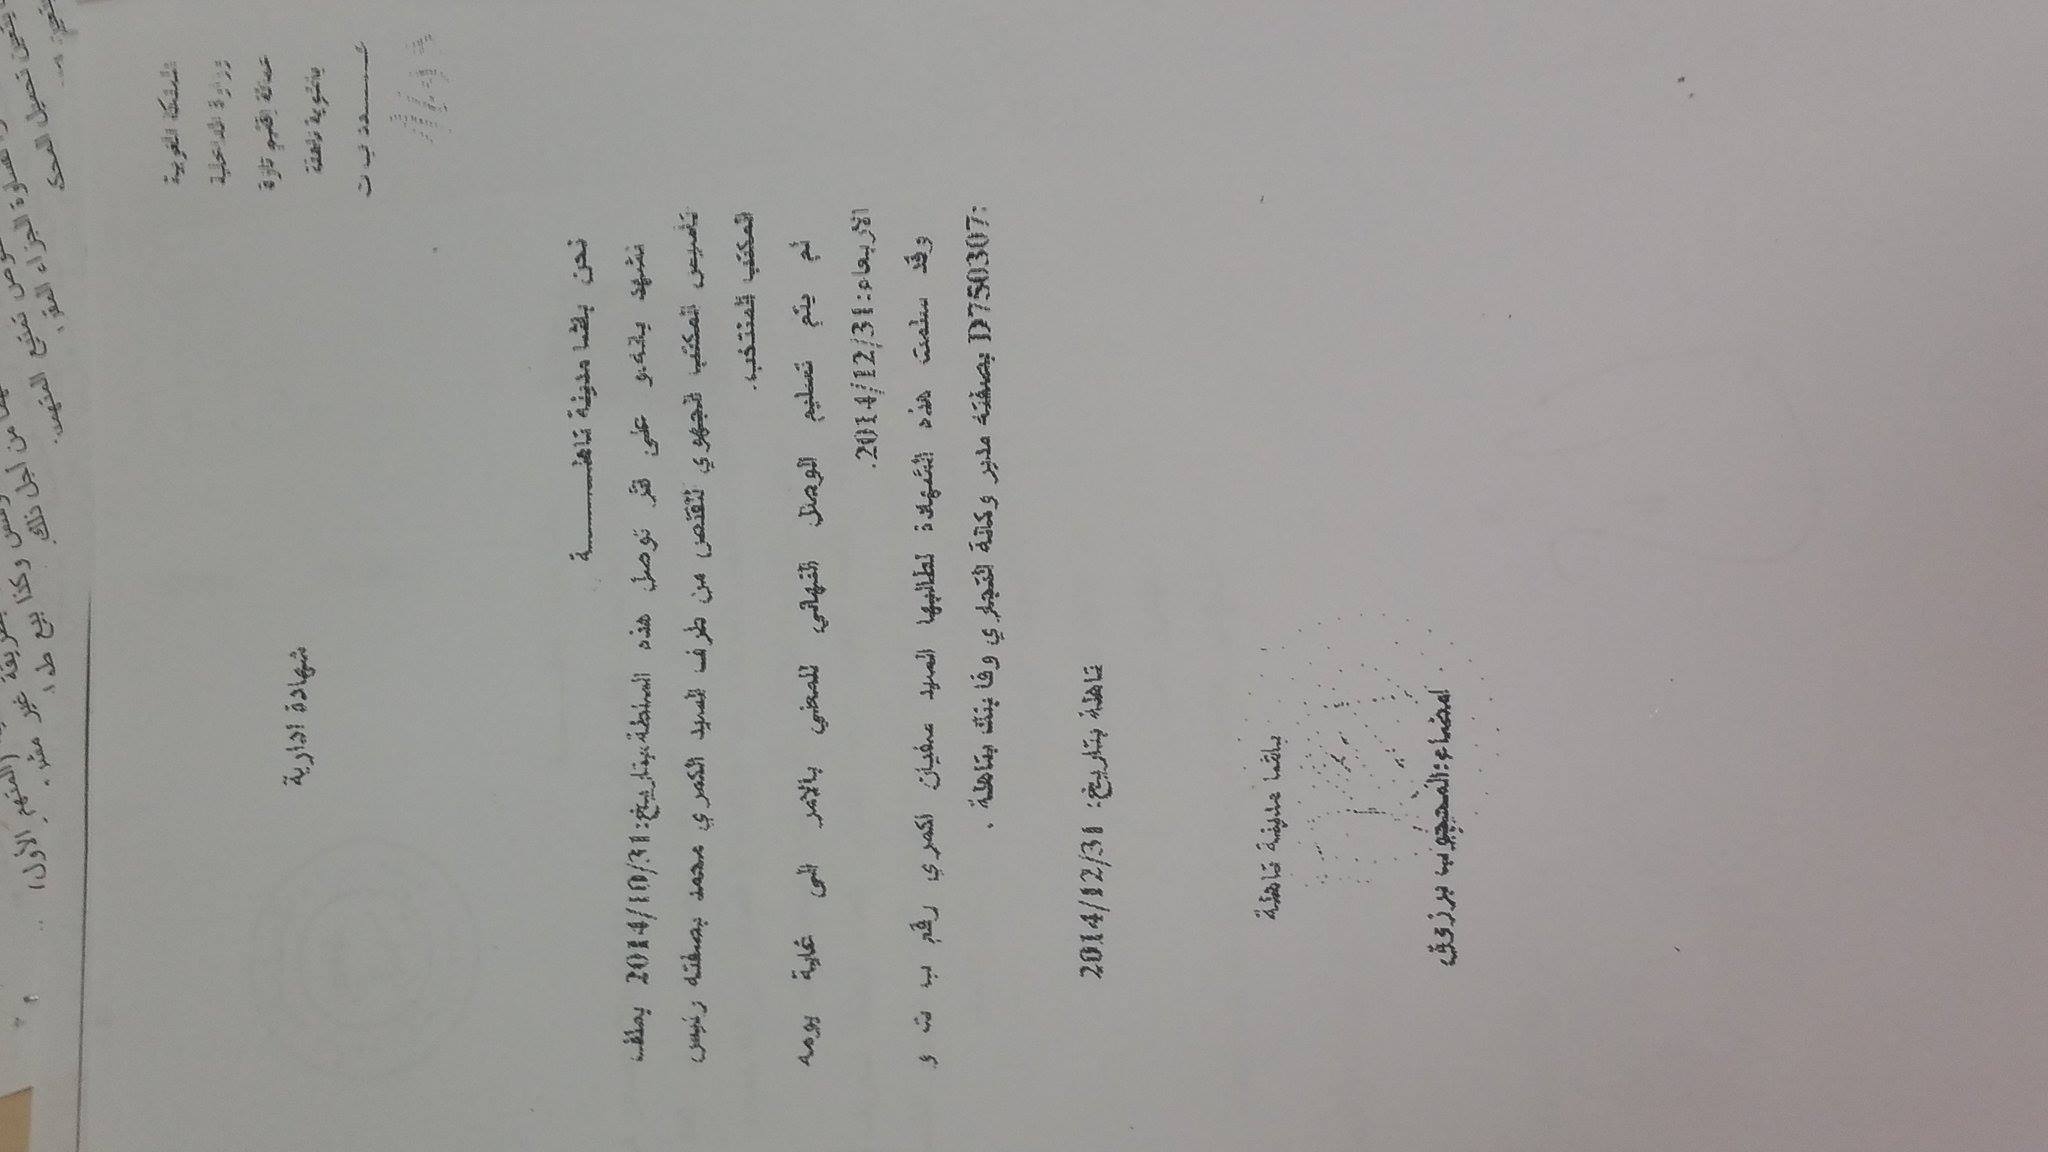 المملكة المغربية
وزارة الداخلية
عمالة إقليم تازة
باشوية تاهلة
شهادة ادارية
نحن باشا مدينة تاهلـــــــــة
نشهد بانه و على اثر توصل هذه السلطة بتاريخ: 2014/10/31 بملف
تأسيس المكتب الجهوي للقنص من طرف السيد الكمري محمد بصفته رئيس
المكتب المنتخب.
لم يتم تسليم الوصل النهائي للمعني بالامر الى غاية يومه
الاربعاء: 2014/12/31.
وقد سلمت هذه الشهادة لطالبها السيد سفيان الكمري رقم ب ت و
:D750307 بصفته مدير وكالة التجاري وفا بنك بتاهلة .
تاهلة بتاريخ: 2014/12/31
باشا مدينة تاهلة
امضاء: المحجوب برزوق